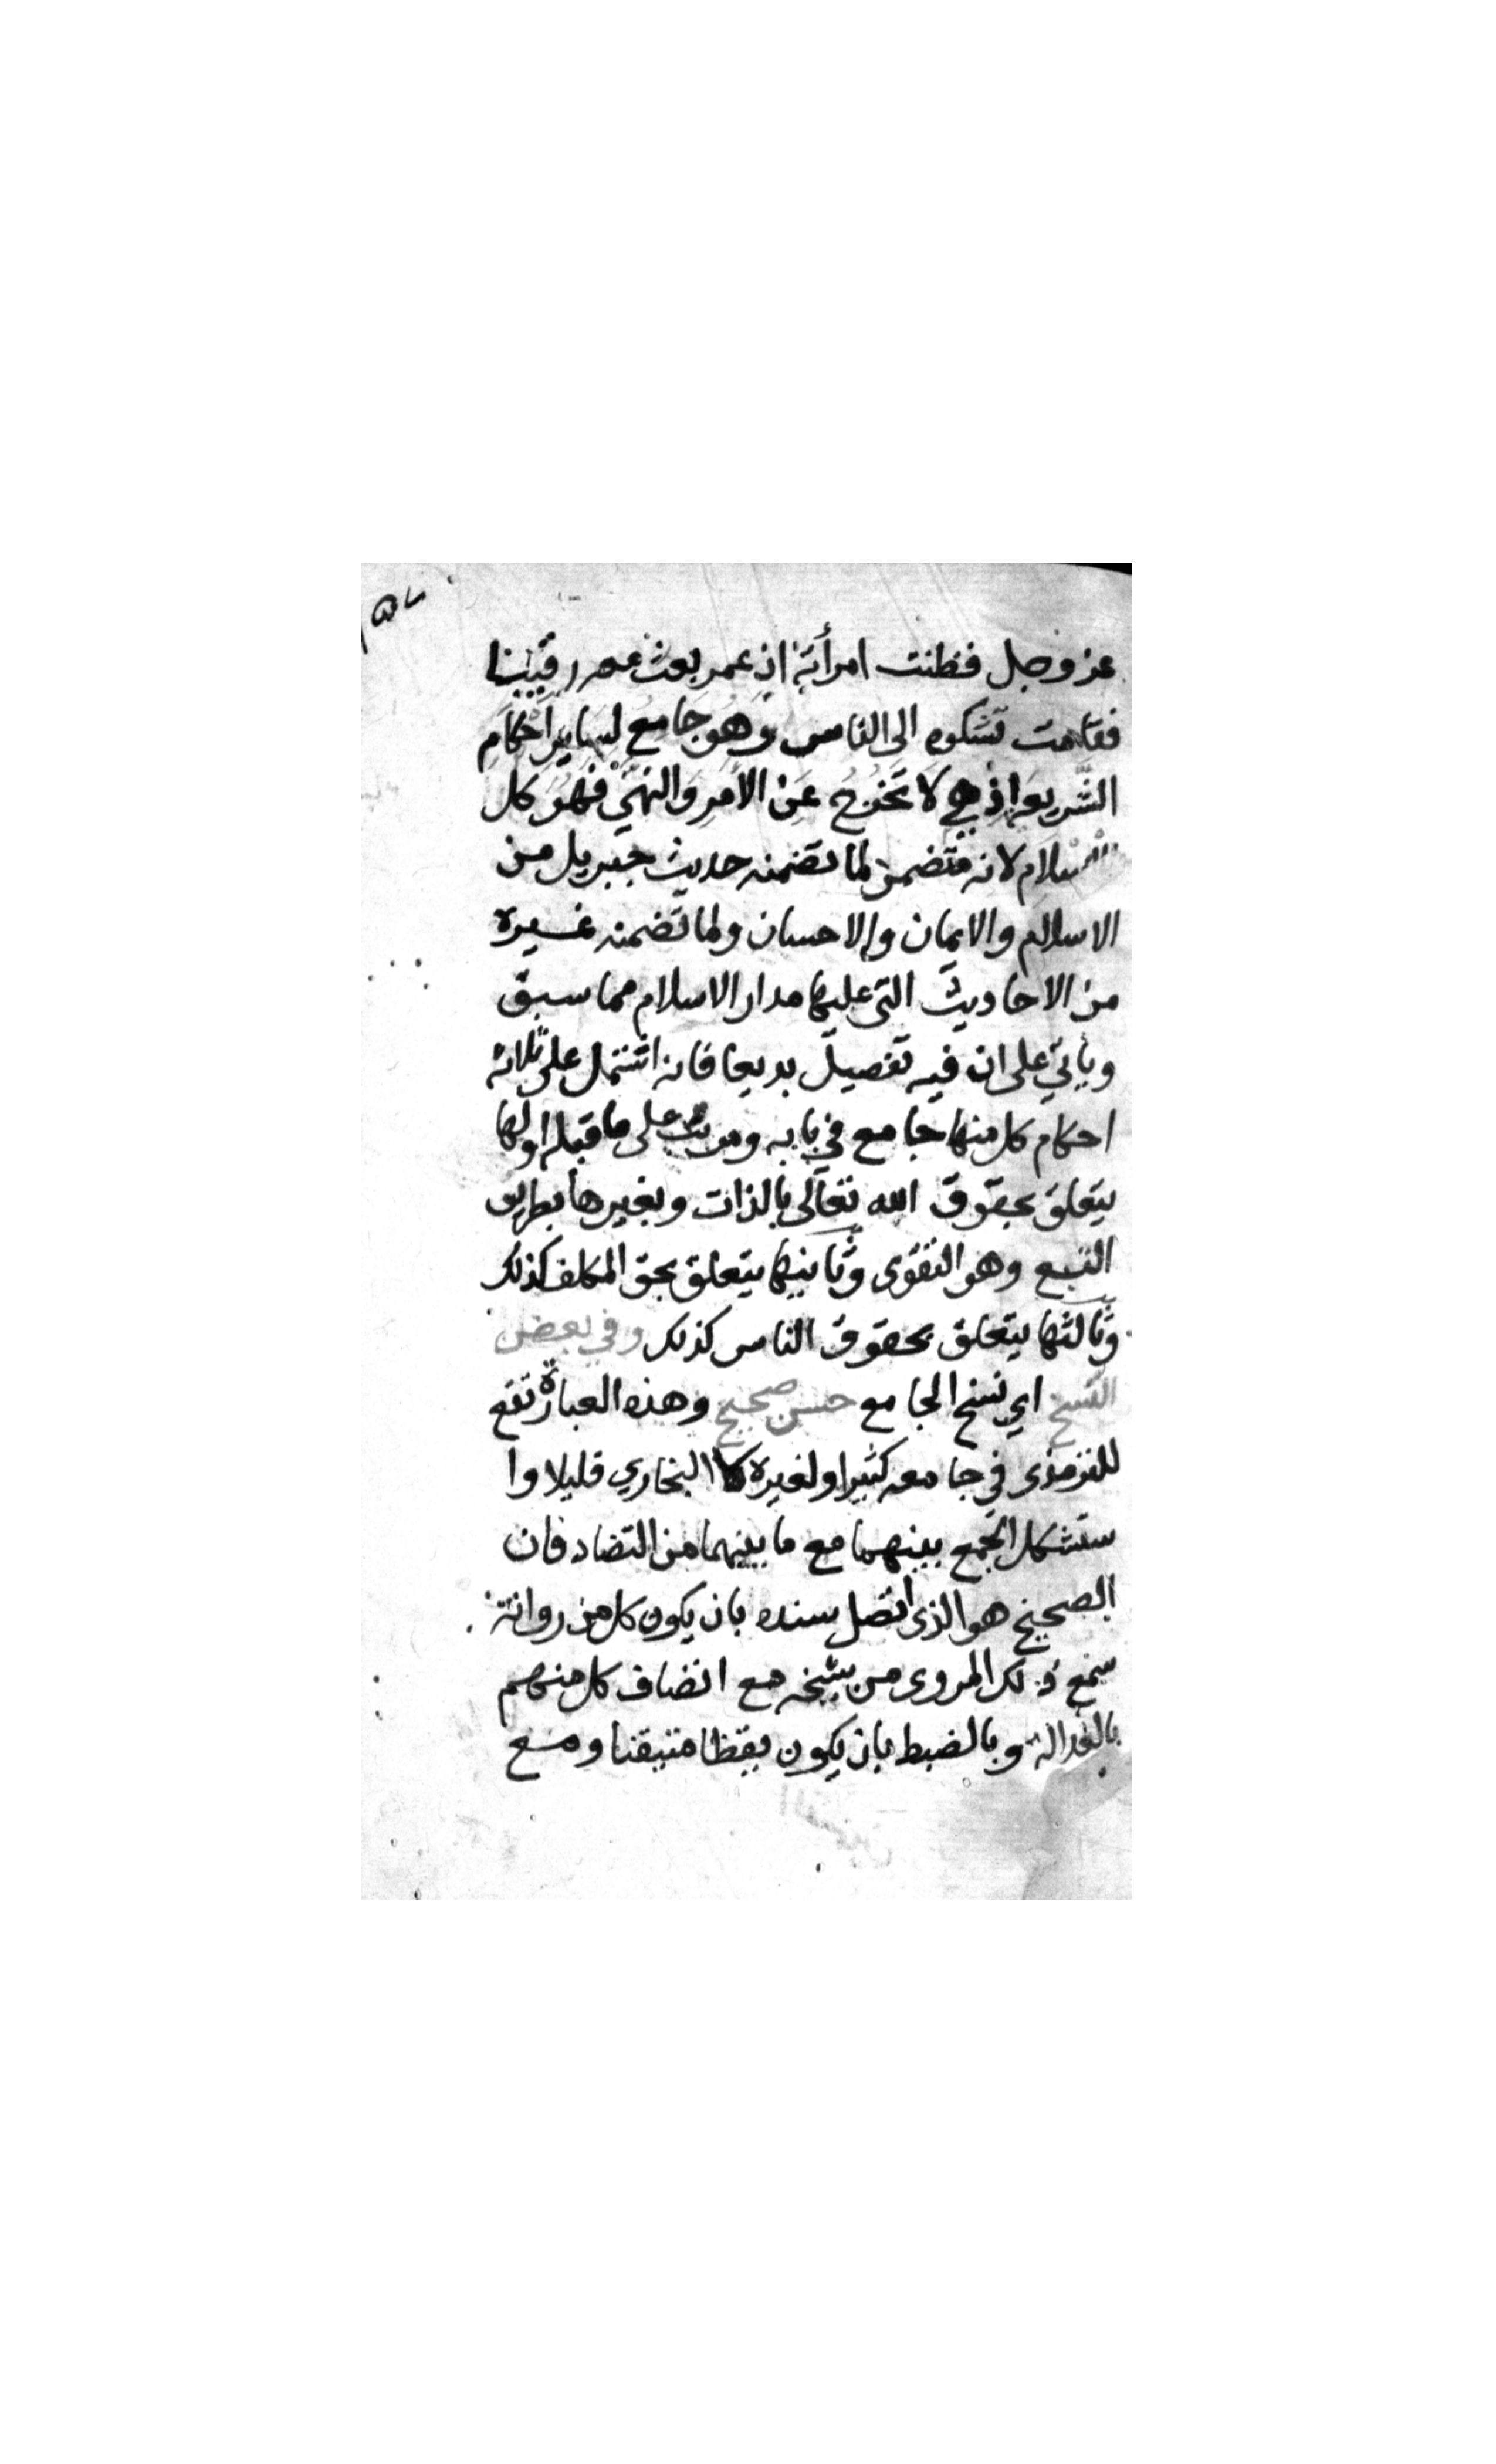 عز وجل فظنت امرأته ان عمر بعث معه رقيبا
فقامت تشكوه الى الناس وَهُوَ جَامِعٌ لِسَايِرِ اَحْكَامِ
الشَّرِيعَة اِذْ هِيَ لَا تَخْرُجُ عَنْ الاَمْرِ وَالنَّهْيِ فَهُوَ كل
الاسلام لانه متضمن لما تضمنه حديث جبريل من
الاسلام والايمان والاحسان ولما تضمنه غيره
من الاحاديث التى عليها مدار الاسلام مما سبق
وياتي على ان فيه تفصيل بديعا فانه اشتمل على ثلاثة
احكام كل منها جامع في بابه ومرتب على ما قبله اولها
يتعلق بحقوق الله تعالى بالذات وبغيرها بطريق
التبع وهو التقوى وثانيها يتعلق بحق المكلف كذلك
وثالثها يتعلق بحقوق الناس كذلك وفي بعض
النسخ اي نسخ الجامع حسن صحيح وهذه العبارة تقع
للترمذي في جامعه كثيرا ولغيره كالبخاري قليلا وا
ستشكل الجمع بينهما مع ما بينهما من التضاد فان
الصحيح هو الذى اتصل سنده بان يكون كل من رواته
سمع ذلك المروى من شيخه مع اتصاف كل منهم
بالعدالة وبالضبط بان يكون يقظا متيقنا ومع